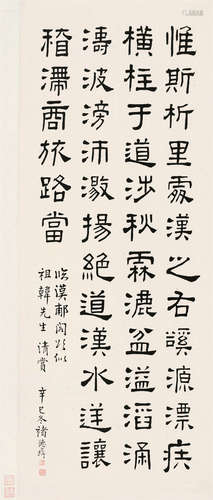 惟斯析里處漢之右谿源漂疾
橫柱于道涉秋霖漉盆溢滔涌
濤波滂沛激揚絕道漢水逆讓
稽滯商旅路當
臨漢郙閣頌似
祖韓先生 清賞 辛巳冬褚德彝